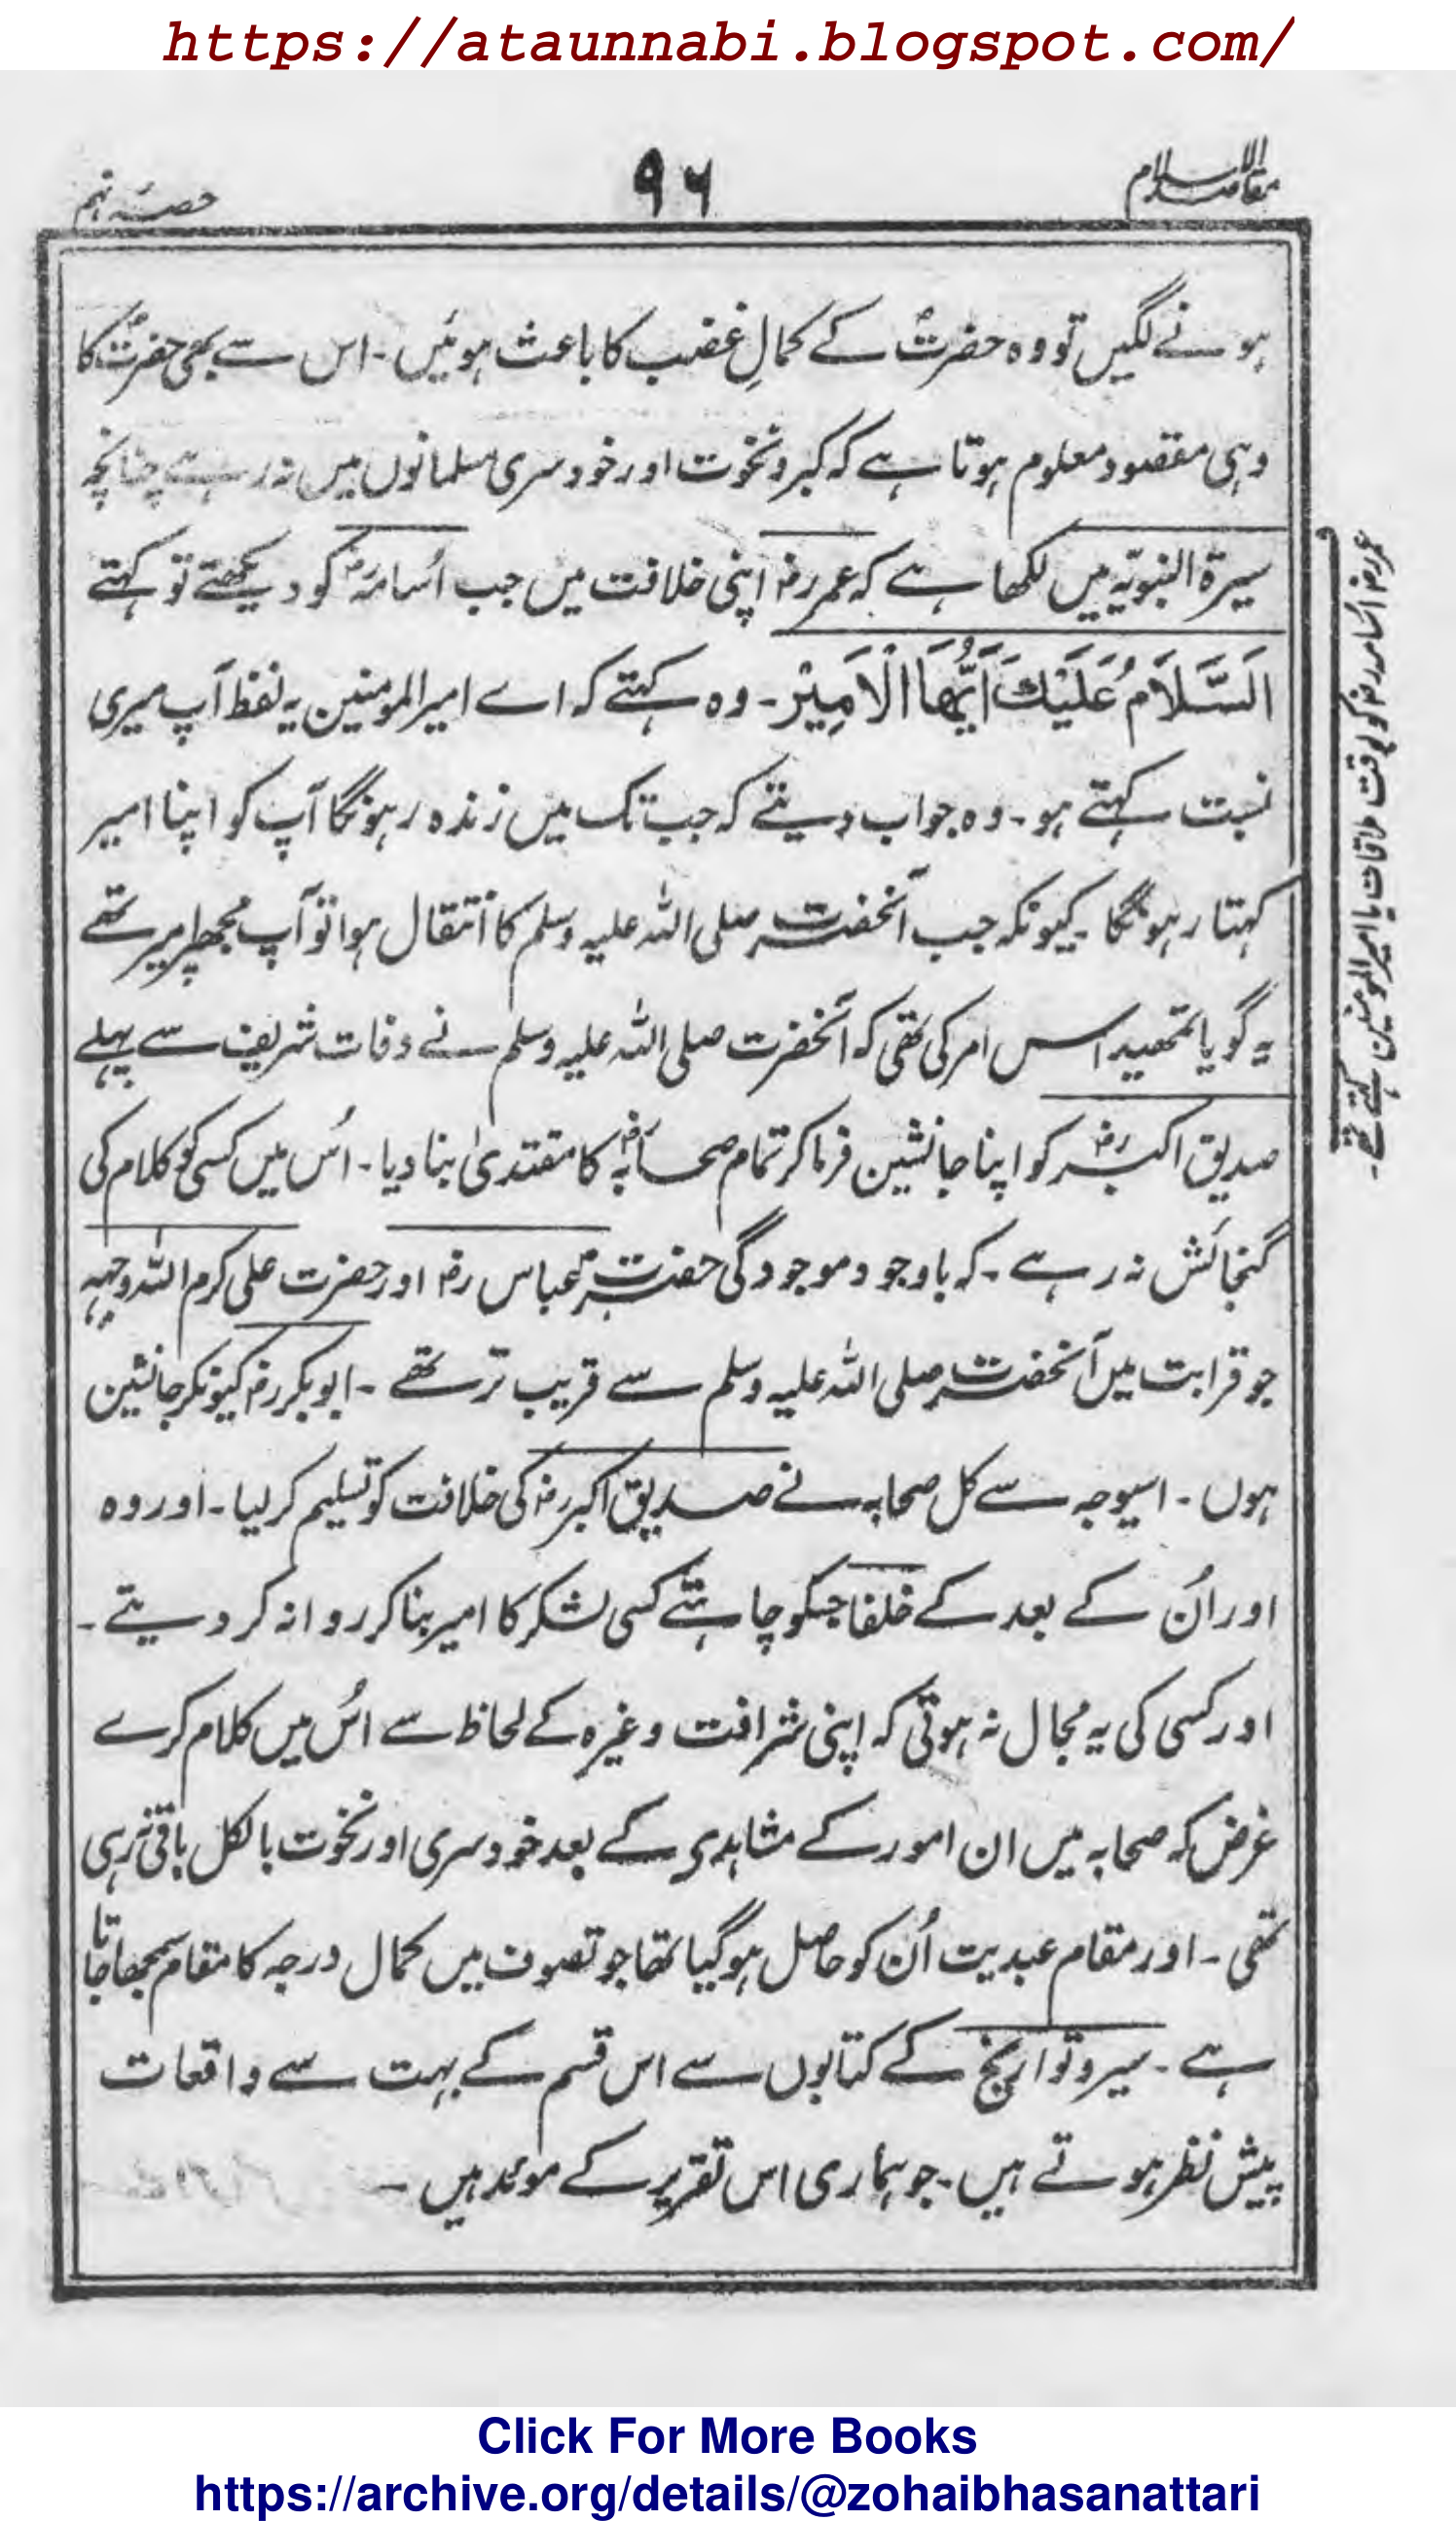 https://ataunnabi.blogspot.com/
مقاصد الاسلام
۹۶
حصہ نہم
ہونے لگیں تو وہ حضرتؐ کے کمالِ غضب کا باعث ہوئیں ۔ اس سے بھی حضرتؐ کا
وہی مقصود معلوم ہوتا ہے کہ کبر و نخوت اور خود سری مسلمانوں میں نہ رہے چنانچہ
سیرۃ النبویّہ میں لکھا ہے کہ عمر رضہ اپنی خلافت میں جب اُسامہؓ کو دیکھتے تو کہتے
اَلسَّلَامُ عَلَیْكَ اَیُّھَا الْاَمِیْر ۔ وہ کہتے کہ اے امیر المومنین یہ لفظ آپ میری
نسبت کہتے ہو ۔ وہ جواب دیتے کہ جب تک میں زندہ رہونگا آپ کو اپنا امیر
کہتا رہونگا ۔ کیونکہ جب آنحضرت صلی اللہ علیہ وسلم کا انتقال ہوا تو آپ مجھپر امیر تھے
یہ گویا تمھید اس امر کی تھی کہ آنحضرت صلی اللہ علیہ وسلم نے وفات شریف سے پہلے
صدیق اکبر رضہ کو اپنا جانشین فرما کر تمام صحابہؓ کا مقتدیٰ بنا دیا ۔ اُس میں کسی کو کلام کی
گنجائش نہ رہے ۔ کہ باوجود موجودگی حضرت عباس رضہ اور حضرت علی کرم اللہ وجہہ
جو قرابت میں آنحضرت صلی اللہ علیہ وسلم سے قریب تر تھے ۔ ابوبکر رضہ کیونکر جانشین
ہوں ۔ اسیوجہ سے کل صحابہ نے صدیق اکبر رضہ کی خلافت کو تسلیم کر لیا ۔ اور وہ
اور اُن کے بعد کے خلفا جسکو چاہتے کسی لشکر کا امیر بنا کر روانہ کر دیتے ۔
اور کسی کی یہ مجال نہ ہوتی کہ اپنی شرافت وغیرہ کے لحاظ سے اُس میں کلام کرے
غرض کہ صحابہ میں ان امور کے مشاہدی کے بعد خود سری اور نخوت بالکل باقی نرہی
تھی ۔ اور مقام عبدیت اُن کو حاصل ہو گیا تھا جو تصوف میں کمال درجہ کا مقام سمجھا جاتا
ہے ۔ سیر و تواریخ کے کتابوں سے اس قسم کے بہت سے واقعات
پیش نظر ہوتے ہیں ۔ جو ہماری اس تقریر کے موئد ہیں ۔
عمر رضہ اسامہ رضہ کو بوقت ملاقات یا امیر المومنین کہتے تھے ۔
Click For More Books
https://archive.org/details/@zohaibhasanattari